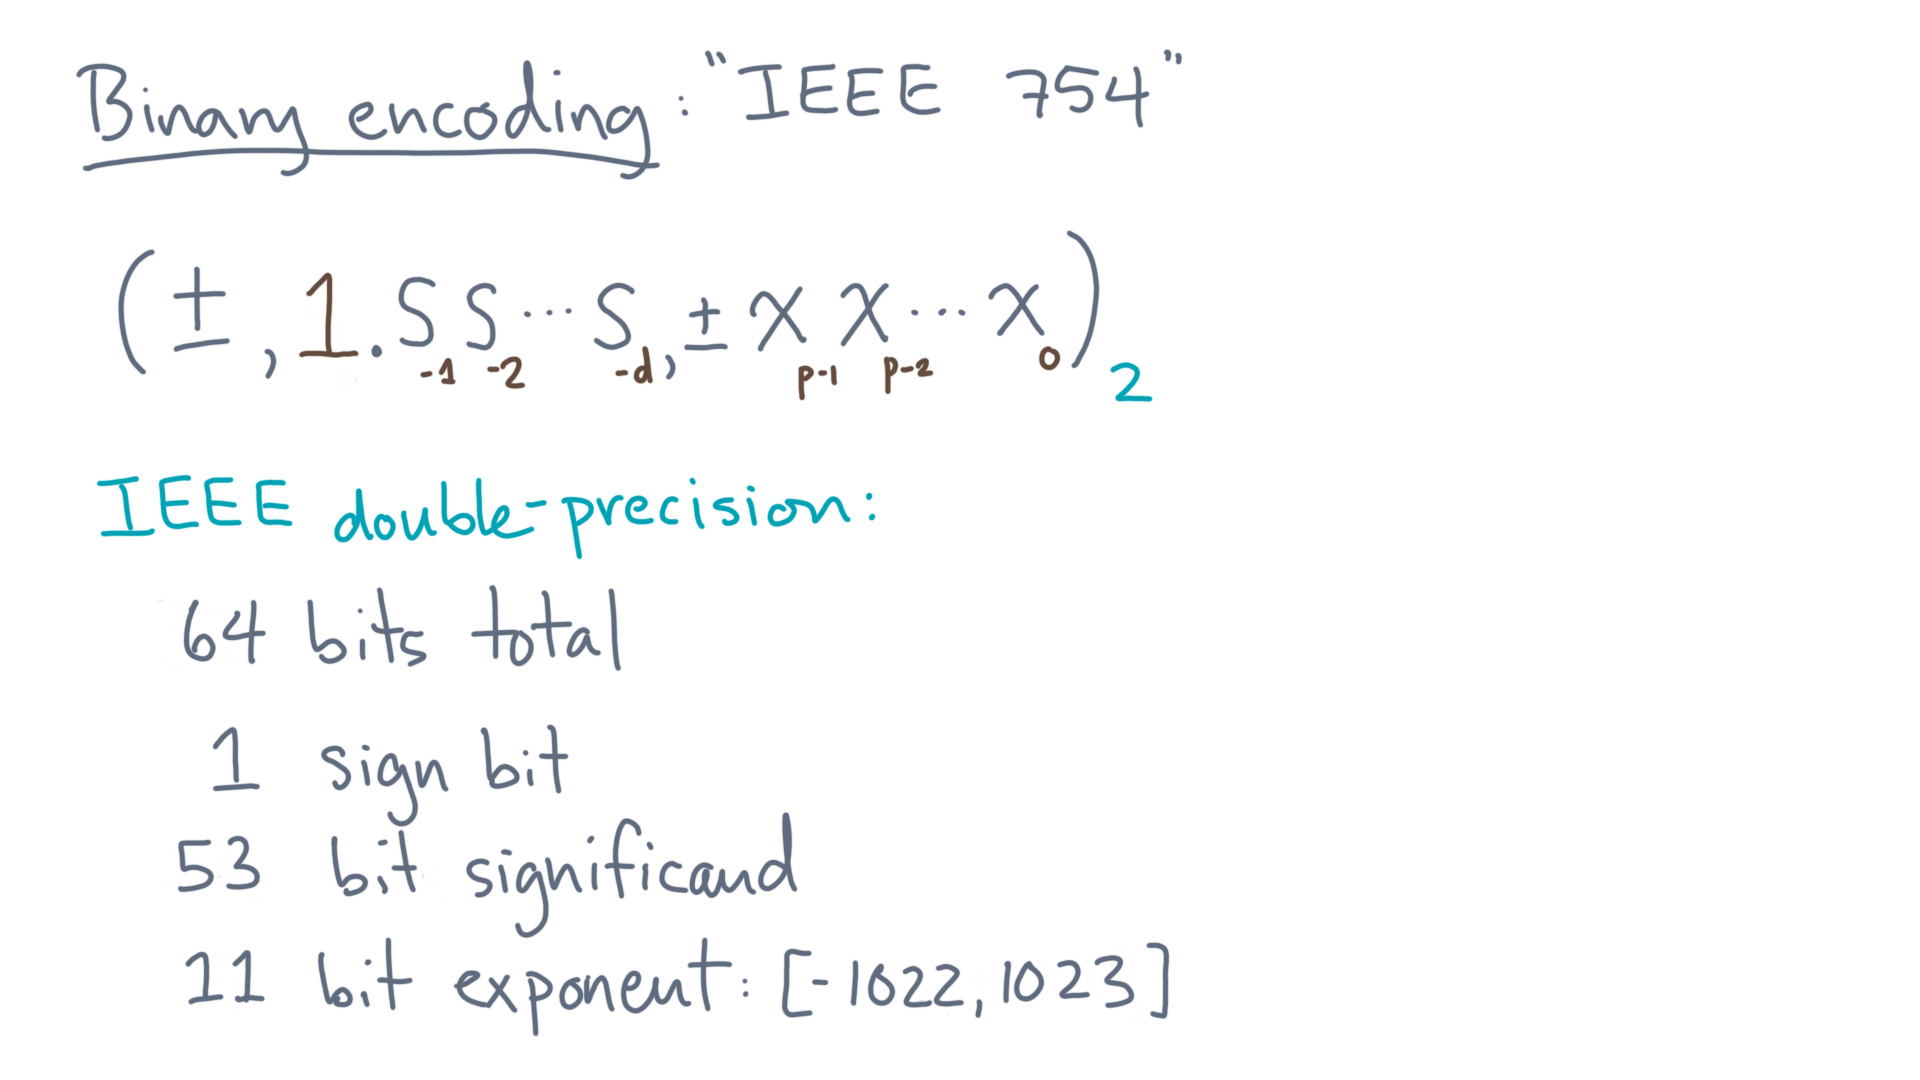 Binary encoding: "IEEE 754"
(±, 1.S₋₁S₋₂⋯S₋d, ±xₚ₋₁xₚ₋₂⋯x₀)₂
IEEE double-precision:
64 bits total
1 sign bit
53 bit significand
11 bit exponent: [-1022, 1023]